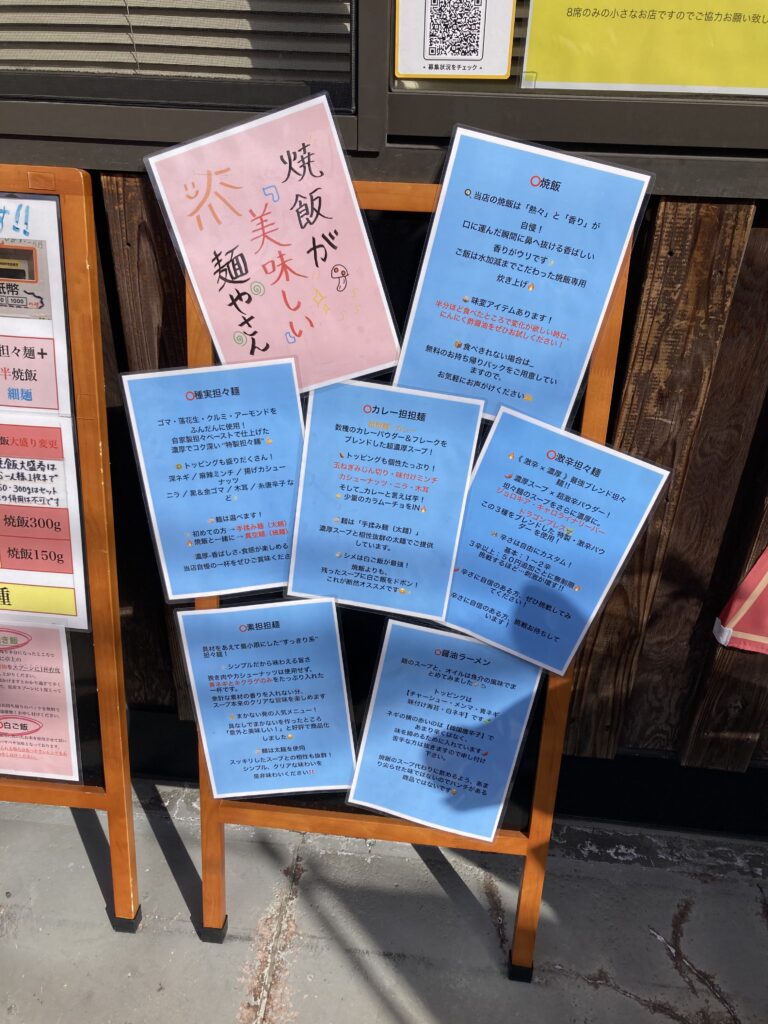 8席のみの小さなお店ですのでご協力お願い致し
・募集状況をチェック・
焼飯が
美味しい
麺やさん
⭕焼飯
🍳当店の焼飯は「熱々」と「香り」が
自慢！
口に運んだ瞬間に鼻へ抜ける香ばしい
香りがウリです
ご飯は水加減までこだわった焼飯専用
炊き上げ🔥
味変アイテムあります！
半分ほど食べたところで変化が欲しい時は、
にんにく酢醤油をぜひお試しください！
食べきれない場合は…
無料のお持ち帰りパックをご用意してい
ますので、
お気軽にお声がけください
⭕種実担々麺
ゴマ・落花生・クルミ・アーモンドを
ふんだんに使用！
自家製担々ペーストで仕上げた
濃厚でコク深い“特製担々麺”
トッピングも盛りだくさん！
深ネギ / 麻辣ミンチ / 揚げカシュー
ナッツ
ニラ / 黒＆金ゴマ / 木耳 / 糸唐辛子な
ど
麺は選べます！
初めての方 → 手揉み麺（太麺）
焼飯と一緒に →
濃厚・香ばしさ・食感が楽しめる
当店自慢の一杯をぜひご賞味くださ
⭕カレー担担麺
数種のカレーパウダー＆フレークを
ブレンドした超濃厚スープ！
トッピングも個性たっぷり！
玉ねぎみじん切り・味付けミンチ
カシューナッツ・ニラ・木耳
そして…カレーと言えば芋！
少量のカラムーチョをIN
麺は「手揉み麺（太麺）」
濃厚スープと相性抜群の太麺でご提供
しています。
シメは白ご飯が最強！
焼飯よりも、
残ったスープに白ご飯をドボン！
これが断然オススメです
⭕激辛担々麺
《激辛 × 濃厚》最強ブレンド担々
麺‼
濃厚スープ × 超激辛パウダー！
担々麺のスープをさらに濃厚に、
ジョロキア・キャロライナリーパー
ドラゴンブレス
この3種をブレンドした“特製・激辛パウ
を使用！
辛さは自由にカスタム！
基本：1〜2辛
3辛以上：50円追加ごとに無制限
挑戦するほど…刺激が増す‼
辛さに自信のある方、ぜひ挑戦してみ
てください！
辛さに自信のある方、挑戦お待ちして
います！
⭕素担担麺
具材をあえて最小限にした“すっきり系”
担々麺！
シンプルだから味わえる旨さ
挽き肉やカシューナッツは使用せず、
青ネギとモクラゲのみをたっぷり入れた
一杯です。
余計な素材の香りを入れない分、
スープ本来のクリアな旨味を楽しめます
まかない発の人気メニュー！
具なしでまかないを作ったところ
「意外と美味しい！」と好評で商品化
しました
麺は太麺を使用
スッキリしたスープとの相性も抜群！
シンプル、クリアな味わいを
是非味わいください‼
⭕醤油ラーメン
鶏のスープと、オイルは魚介の風味でま
とめてみました
トッピングは
【チャーシュー・メンマ・青ネギ
味付け海苔・白ネギ】です
ネギの横の赤いのは【韓国唐辛子】で
あまり辛くはなく、
味を締めるために入れています
苦手な方は抜きますので申し付け
下さい。
焼飯のスープ代わりに飲めるよう、あま
り尖らせた味ではないのでパンチがある
商品ではないです
す!!
紙幣
1000
担々麺＋
半焼飯
細麺
飯大盛り変更
焼飯300g
焼飯150g
種
⭕白ご飯